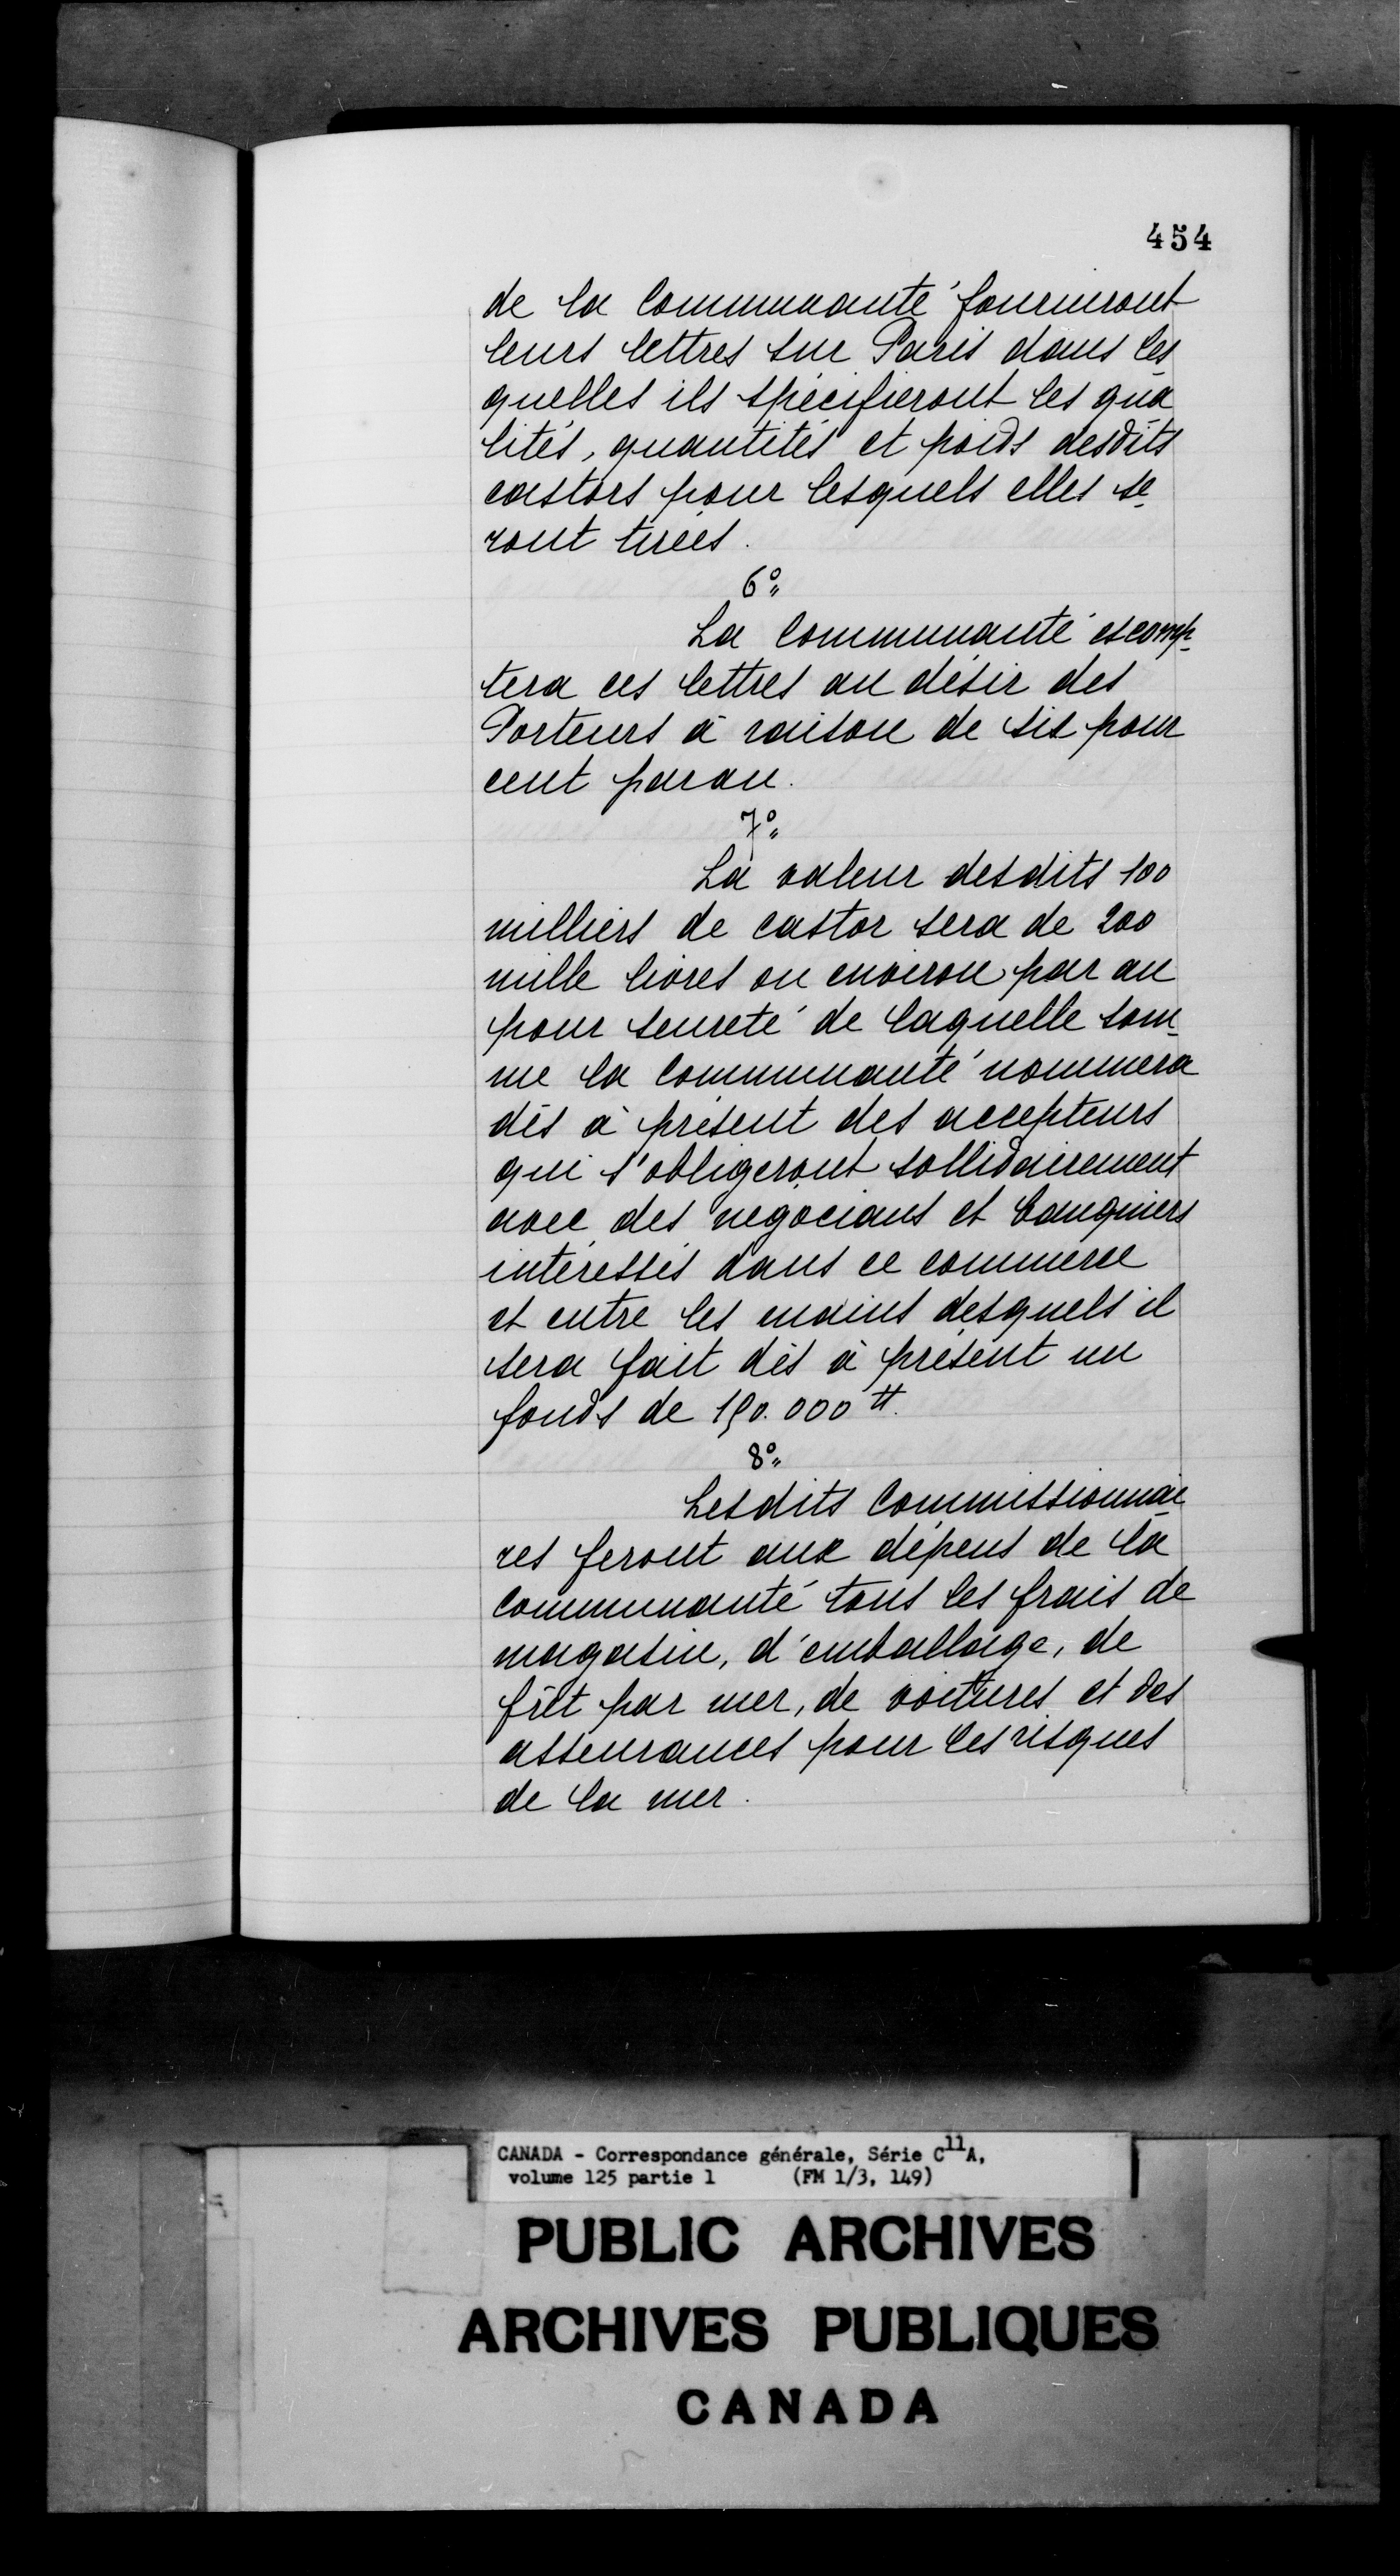 454
de la Communauté fourniront
leurs lettres sur Paris dans les
quelles ils spécifieront les qua
lités, quantités et poids desdits
castors pour lesquels elles se
ront tirées.
6°
La Communauté escomp-
tera ces lettres au désir des
Porteurs à raison de six pour
cent par an.
7°
La valeur desdits 100
milliers de castor sera de 200
mille livres ou environ par an
pour seureté de laquelle som-
me la Communauté nommera
dès à présent des accepteurs
qui s'obligeront sollidairement
avec des négocians et banquiers
intéressés dans ce commerce
et entre les mains desquels il
sera fait dès à présent un
fonds de 150.000 ₶.
8°
Lesdits Commissionnai
res feront aux dépens de la
Communauté tous les frais de
magasin, d'emballage, de
frêt par mer, de voitures et des
asseurances pour les risques
de la mer.
CANADA - Correspondance générale, Série C11A,
volume 125 partie 1 (FM 1/3, 149)
PUBLIC ARCHIVES
ARCHIVES PUBLIQUES
CANADA